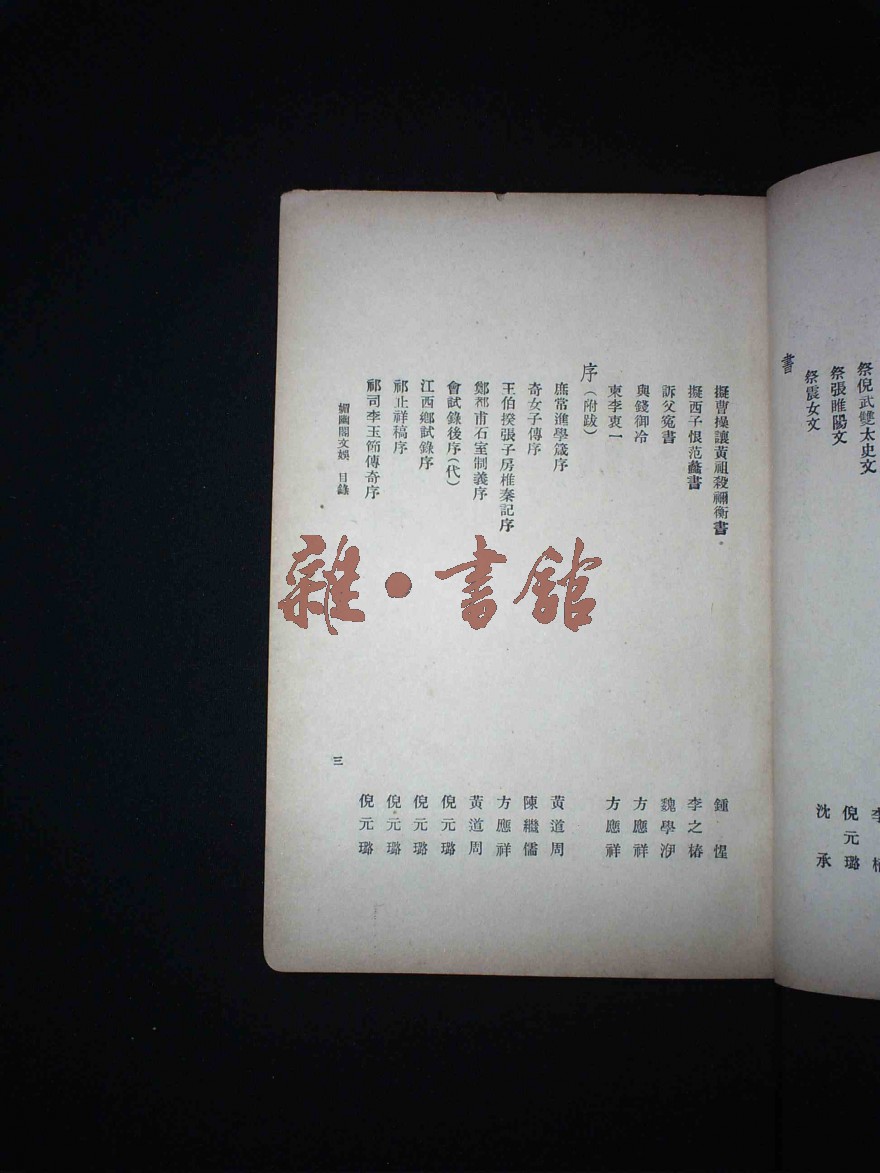 祭倪武雙太史文
祭張睢陽文 倪元璐
祭震女文 沈承
書
擬曹操讓黃祖殺禰衡書 鍾惺
擬西子恨范蠡書 李之椿
訴父寃書 魏學洢
與錢御冷 方應祥
東李衷一 方應祥
序（附跋）
庶常進學箴序 黃道周
奇女子傳序 陳繼儒
王伯揆張子房椎秦記序 方應祥
鄭都甫石室制義序 黃道周
會試錄後序（代） 倪元璐
江西鄉試錄序 倪元璐
祁止祥稿序 倪元璐
祁司李玉節傳奇序 倪元璐
媚幽閣文娛 目錄 三
雜·書館